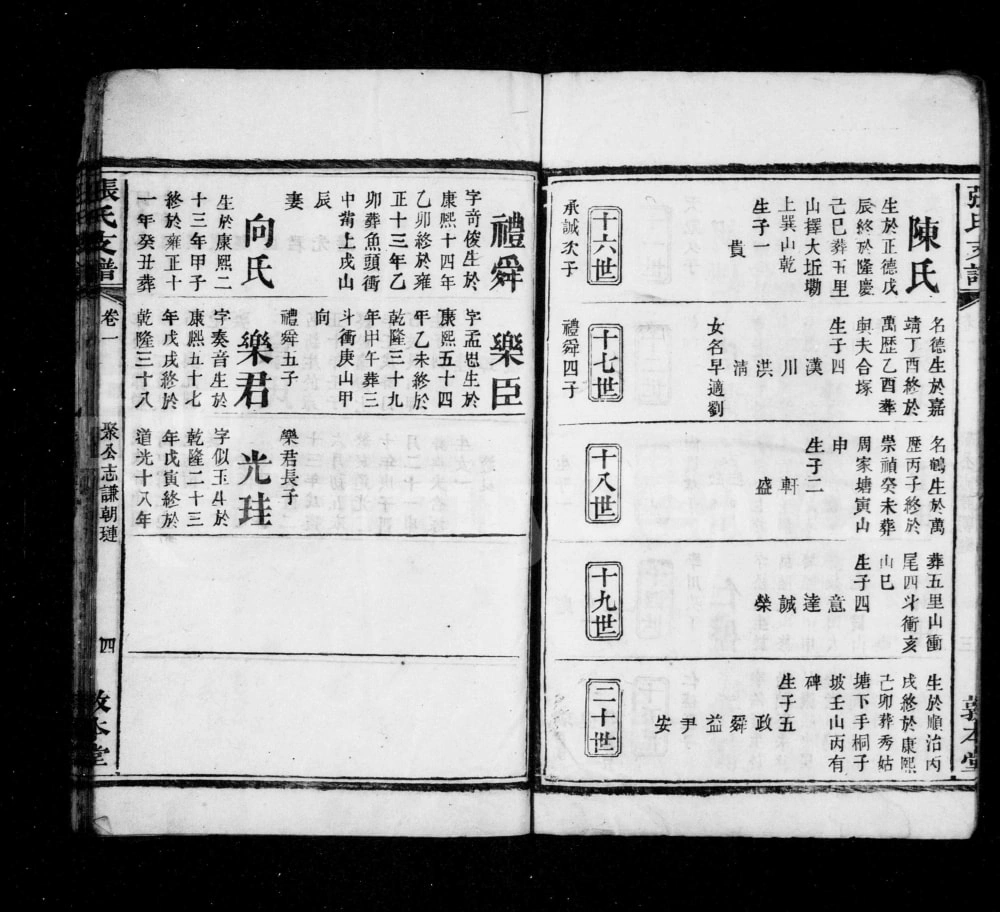 張氏支譜
敦本堂
陳氏
生於正德戊
辰終於隆慶
己巳葬五里
山擇大坵塝
上巽山乾
生子一
貴
名德生於嘉
靖丁酉終於
萬歷乙酉葬
與夫合塚
生子四
漢
川
洪
清
女名早適劉
名鶴生於萬
歷丙子終於
崇禎癸未葬
周家塘寅山
申
生子二
軒
盛
葬五里山衝
尾四斗衝亥
山巳
生子四
意
達
誠
榮
生於順治丙
戌終於康熙
己卯葬秀姑
塘下手桐子
坡壬山丙有
碑
生子五
政
舜
益
尹
安
十六世
十七世
十八世
十九世
二十世
承誠次子
禮舜四子
禮舜
字奇俊生於
康熙十四年
乙卯終於雍
正十三年乙
卯葬魚頭衝
中嘴上戌山
辰
妻
向氏
生於康熙二
十三年甲子
終於雍正十
一年癸丑葬
樂臣
字孟思生於
康熙五十四
年乙未終於
乾隆三十九
年甲午葬三
斗衝庚山甲
向
禮舜五子
樂君
字奏音生於
康熙五十七
年戊戌終於
乾隆三十八
樂君長子
光珪
字似玉斗於
乾隆二十三
年戊寅終於
道光十八年
張氏支譜
卷一
聚公志謙朝璉
四
敦本堂